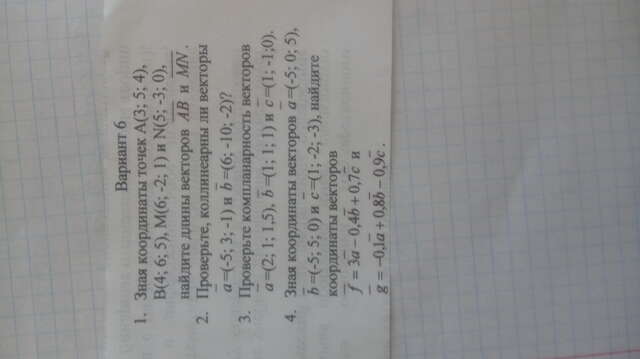 Вариант 6
1. Зная координаты точек A(3; 5; 4),
B(4; 6; 5), M(6; -2; 1) и N(5; -3; 0),
найдите длины векторов AB и MN .
2. Проверьте, коллинеарны ли векторы
a=(-5; 3; -1) и b=(6; -10; -2)?
3. Проверьте компланарность векторов
a=(2; 1; 1,5), b=(1; 1; 1) и c=(1; -1;0).
4. Зная координаты векторов a=(-5; 0; 5),
b=(-5; 5; 0) и c=(1; -2; -3), найдите
координаты векторов
f = 3a − 0,4b + 0,7c и
g = −0,1a + 0,8b − 0,9c .